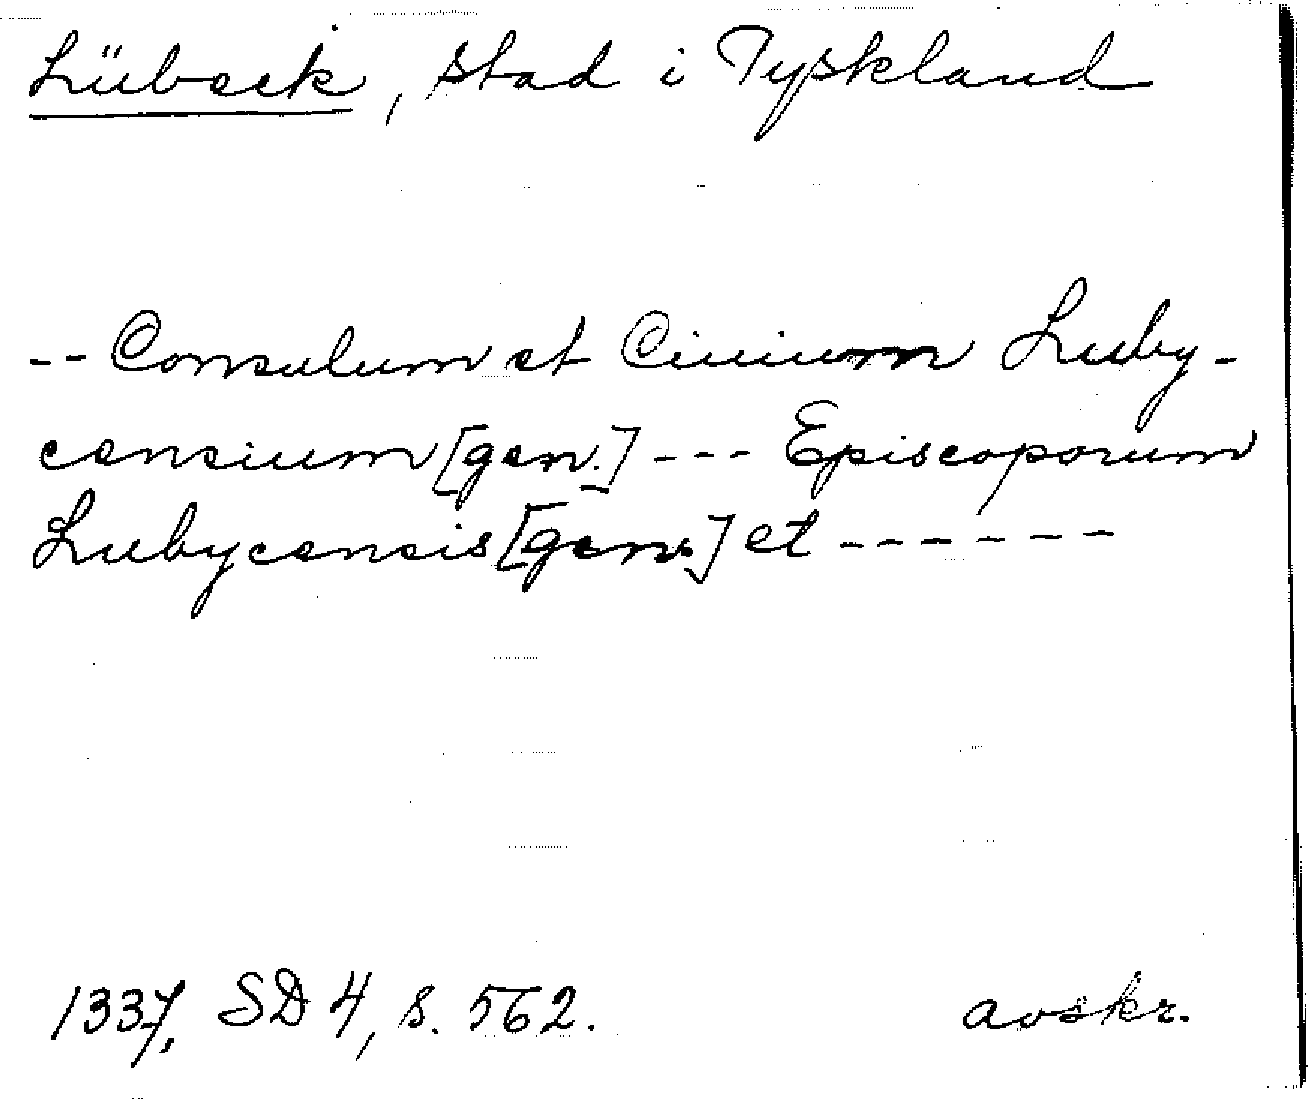 Lübeck, stad i Tyskland
-- Consulum et Ciuium Luby-
censium [gen.] --- Episcoporum
Lubycensis [gen.] et ------
1337, SD 4, s. 562. avskr.